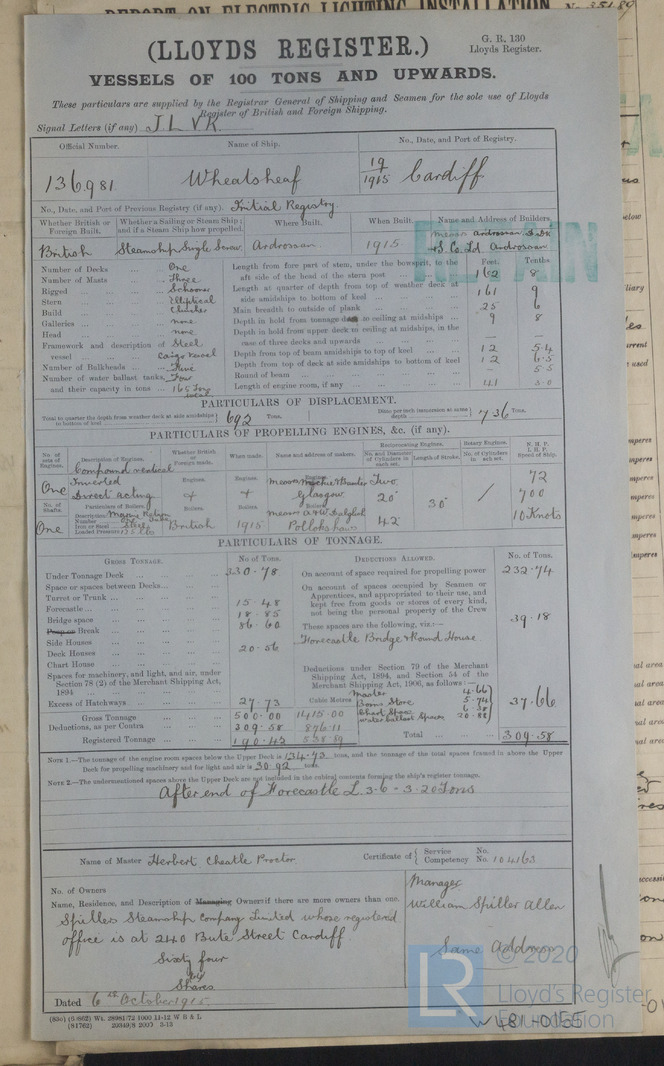 REPORT ON ELECTRIC LIGHTING INSTALLATION No.
(LLOYDS REGISTER.)
G. R. 130
Lloyds Register.
VESSELS OF 100 TONS AND UPWARDS.
These particulars are supplied by the Registrar General of Shipping and Seamen for the sole use of Lloyds
Register of British and Foreign Shipping.
Signal Letters (if any) J.L.V.K.
Official Number. Name of Ship. No., Date, and Port of Registry.
136,981 Wheatsheaf 19/1915 Cardiff
No., Date, and Port of Previous Registry (if any). Initial Registry.
Whether British or Foreign Built. Whether a Sailing or Steam Ship; and if a Steam Ship how propelled. Where Built. When Built. Name and Address of Builders.
British Steamship Single Screw Ardrossan. 1915 Ardrossan D. D. & S. Co. Ld Ardrossan
RETAIN
Feet. Tenths.
Number of Decks One
Number of Masts Three
Rigged Schooner
Stern Elliptical
Build Clincher
Galleries none
Head none
Framework and description of vessel Steel Cargo Vessel
Number of Bulkheads Five
Number of water ballast tanks, Four
and their capacity in tons 165 Tons
Length from fore part of stem, under the bowsprit, to the aft side of the head of the stern post 162 8
Length at quarter of depth from top of weather deck at side amidships to bottom of keel 161 9
Main breadth to outside of plank 25 6
Depth in hold from tonnage deck to ceiling at midships 9 8
Depth in hold from upper deck to ceiling at midships, in the case of three decks and upwards — —
Depth from top of beam amidships to top of keel 12 5.4
Depth from top of deck at side amidships to bottom of keel 12 6.5
Round of beam — 5.5
Length of engine room, if any 41 5.0
PARTICULARS OF DISPLACEMENT.
Total to quarter the depth from weather deck at side amidships to bottom of keel 692 Tons. Ditto per inch immersion at same depth 7.36 Tons.
PARTICULARS OF PROPELLING ENGINES, &c. (if any).
No. of sets of Engines. Description of Engines. Whether British or Foreign made. When made. Name and address of makers. Reciprocating Engines. No. and Diameter of Cylinders in each set. Length of Stroke. Rotary Engines. No. of Cylinders in each set. N. H. P. I. H. P. Speed of Ship.
One Compound vertical Inverted Direct acting
Engines. Engines. Engines. Glasgow Two 20" 42" 30" / 72 700 10 Knots
No. of Shafts. Particulars of Boilers. Boilers. Boilers. Boilers.
One Description
Number One
Iron or Steel Steel
Loaded Pressure
British 1915 Pollokshaws
PARTICULARS OF TONNAGE.
GROSS TONNAGE. No of Tons. DEDUCTIONS ALLOWED. No. of Tons.
Under Tonnage Deck 330.78
Space or spaces between Decks
Turret or Trunk
Forecastle 15.48
Bridge space 18.85
Poop or Break 86.60
Side Houses
Deck Houses 20.56
Chart House
Spaces for machinery, and light, and air, under Section 78 (2) of the Merchant Shipping Act, 1894
Excess of Hatchways 27.73
Gross Tonnage 500.00 1415.00
Deductions, as per Contra 309.58 876.11
Registered Tonnage 190.42 538.89
On account of space required for propelling power 232.74
On account of spaces occupied by Seamen or Apprentices, and appropriated to their use, and kept free from goods or stores of every kind, not being the personal property of the Crew 39.18
These spaces are the following, viz.:—
Forecastle Bridge & Round House
Deductions under Section 79 of the Merchant Shipping Act, 1894, and Section 54 of the Merchant Shipping Act, 1906, as follows:—
Cubic Metres
Master 4.66
Bosns Store 5.74
Chart Space 6.38
water ballast Spaces 20.88
37.66
Total 309.58
NOTE 1.—The tonnage of the engine room spaces below the Upper Deck is 134.73 tons, and the tonnage of the total spaces framed in above the Upper
Deck for propelling machinery and for light and air is 30.92 tons.
NOTE 2.—The undermentioned spaces above the Upper Deck are not included in the cubical contents forming the ship's register tonnage.
After end of Forecastle L. 3.6 - 3.20 Tons
Name of Master Herbert Cheatle Proctor Certificate of Service No. Competency No. 104163
No. of Owners
Name, Residence, and Description of Managing Owner if there are more owners than one.
Spillers Steamship Company Limited whose registered
office is at 240 Bute Street Cardiff
Sixty four
Shares
Manager
William Spiller Allen
Same Address
Dated 6th October 1915.
(81762) 20349/8 2000 3-13
LR
© 2020
Lloyd's Register
Foundation
W481-0155